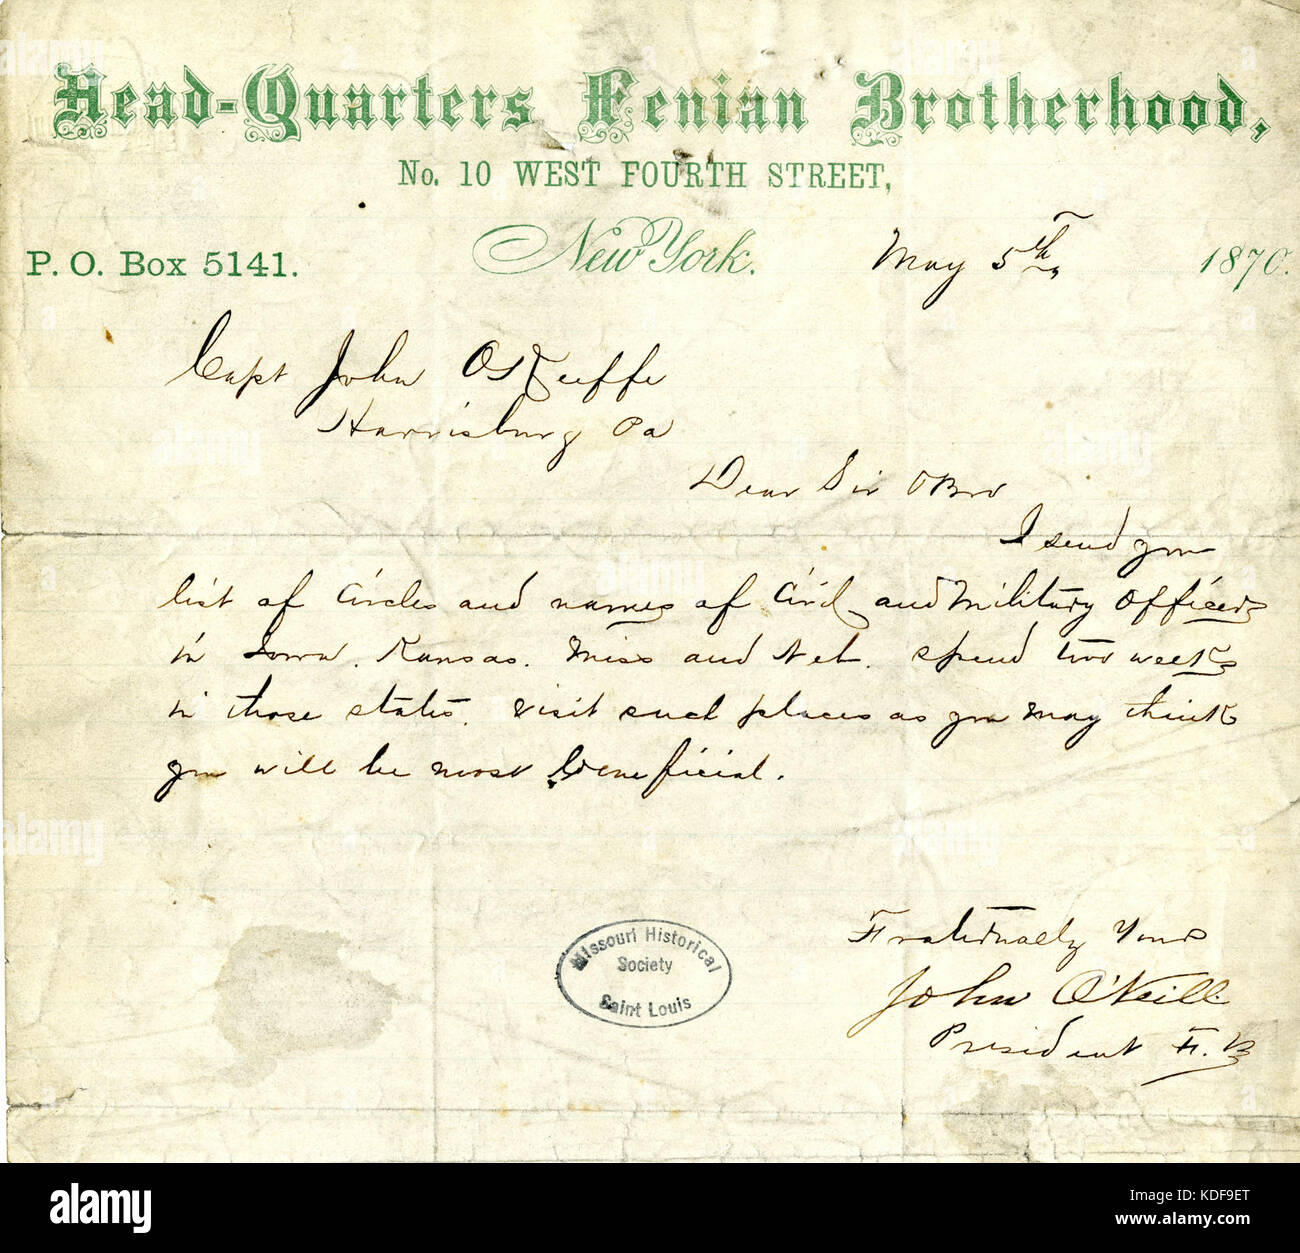 Head-Quarters Fenian Brotherhood,
No. 10 WEST FOURTH STREET,
P. O. Box 5141. New York. May 5th 1870.
Capt John O'Keeffe
Harrisburg Pa
Dear Sir & Bro
I send you
list of Circles and names of Civil and Military Officers
in Iowa. Kansas. Miss and Neb. spend two weeks
in those states. visit such places as you may think
you will be most beneficial.
Fraternally Yours
John O'Neill
President F. B
Missouri Historical
Society
Saint Louis
alamy
Image ID: KDF9ET
www.alamy.com